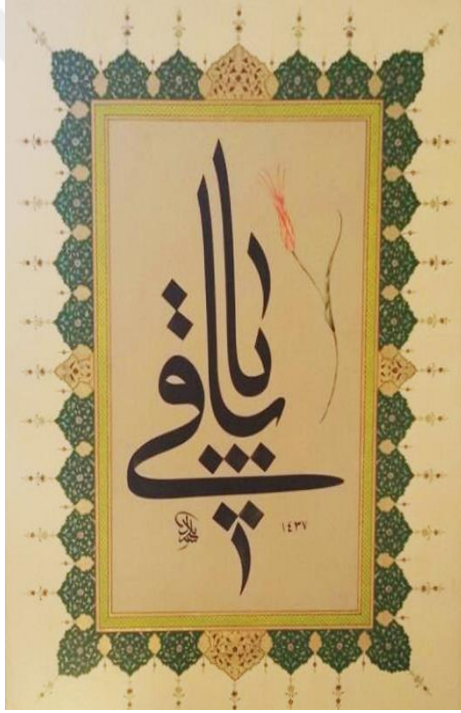 يا باقي
١٤٣٧